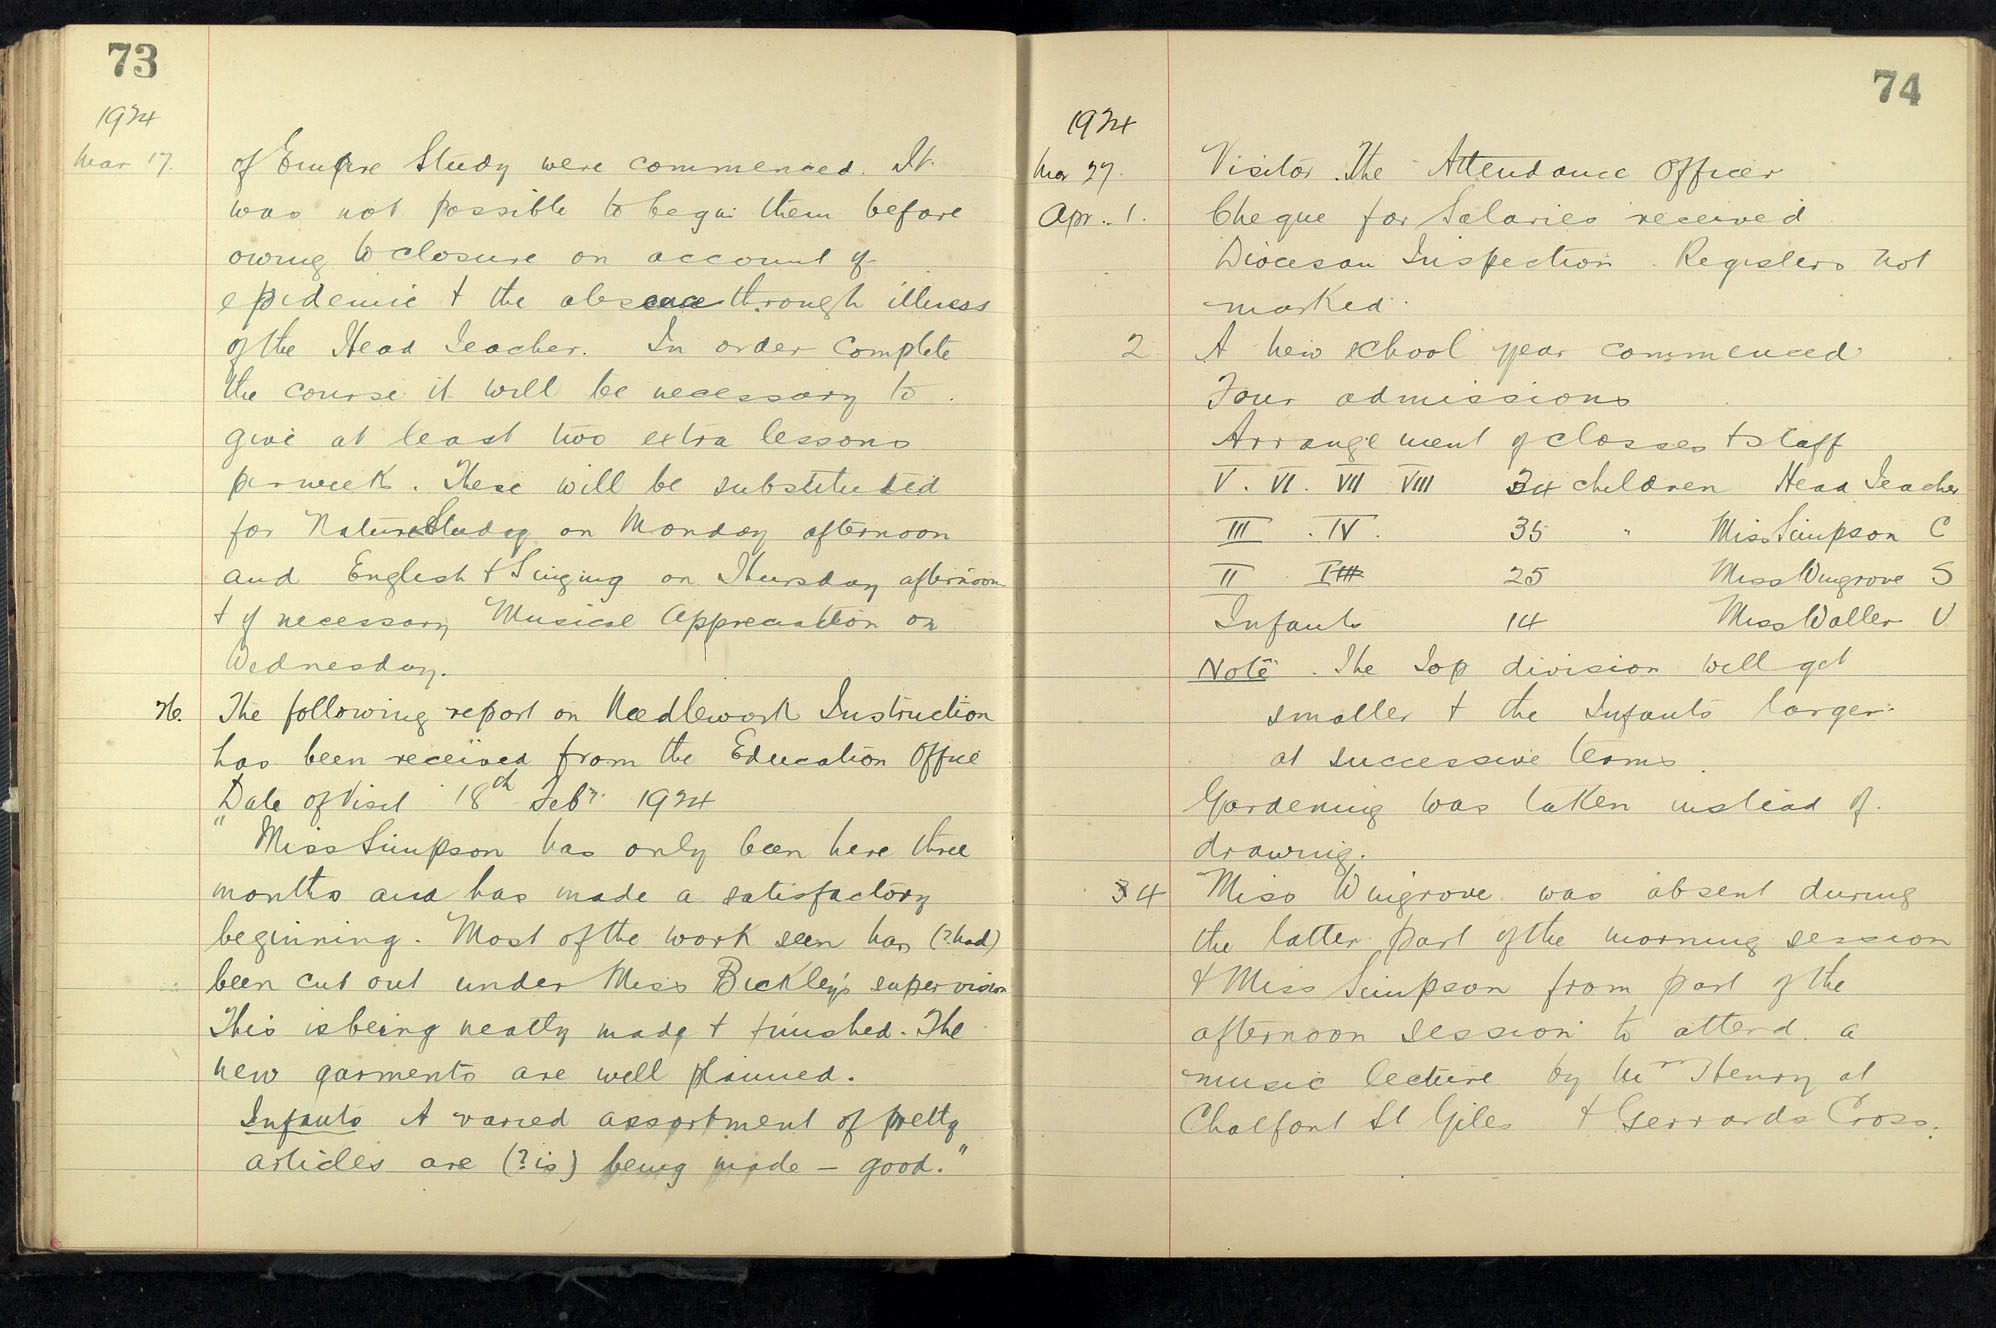 73
1924
Mar 17. of Empire Study were commenced. It
was not possible to begin them before
owing to closure on account of
epidemic & the absence through illness
of the Head Teacher. In order complete
the course it will be necessary to
give at least two extra lessons
per week. These will be substituted
for Nature Study on Monday afternoon
and English & Singing on Thursday afternoon
& if necessary Musical Appreciation on
Wednesday.
26. The following report on Needlework Instruction
has been received from the Education Office
Date of Visit 18th Feby. 1924
"Miss Simpson has only been here three
months and has made a satisfactory
beginning. Most of the work seen has (?had)
been cut out under Miss Bickley's supervision
This is being neatly made & finished. The
new garments are well planned.
Infants A varied assortment of pretty
articles are (?is) being made – good."
74
1924
Mar 27. Visitor. The Attendance Officer
Apr. 1. Cheque for Salaries received
Diocesan Inspection. Registers not
marked.
2 A new school year commenced
Four admissions
Arrangement of classes & staff
V. VI. VII VIII 34 children Head Teacher
III. IV. 35 " Miss Simpson C
II I 25 Miss Wingrove S
Infants 14 Miss Waller U
Note. The Top division will get
smaller & the Infants larger
at successive terms.
Gardening was taken instead of
drawing.
4 Miss Wingrove was absent during
the latter part of the morning session
& Miss Simpson from part of the
afternoon session to attend a
music lecture by Mr Henry at
Chalfont St Giles & Gerrards Cross.